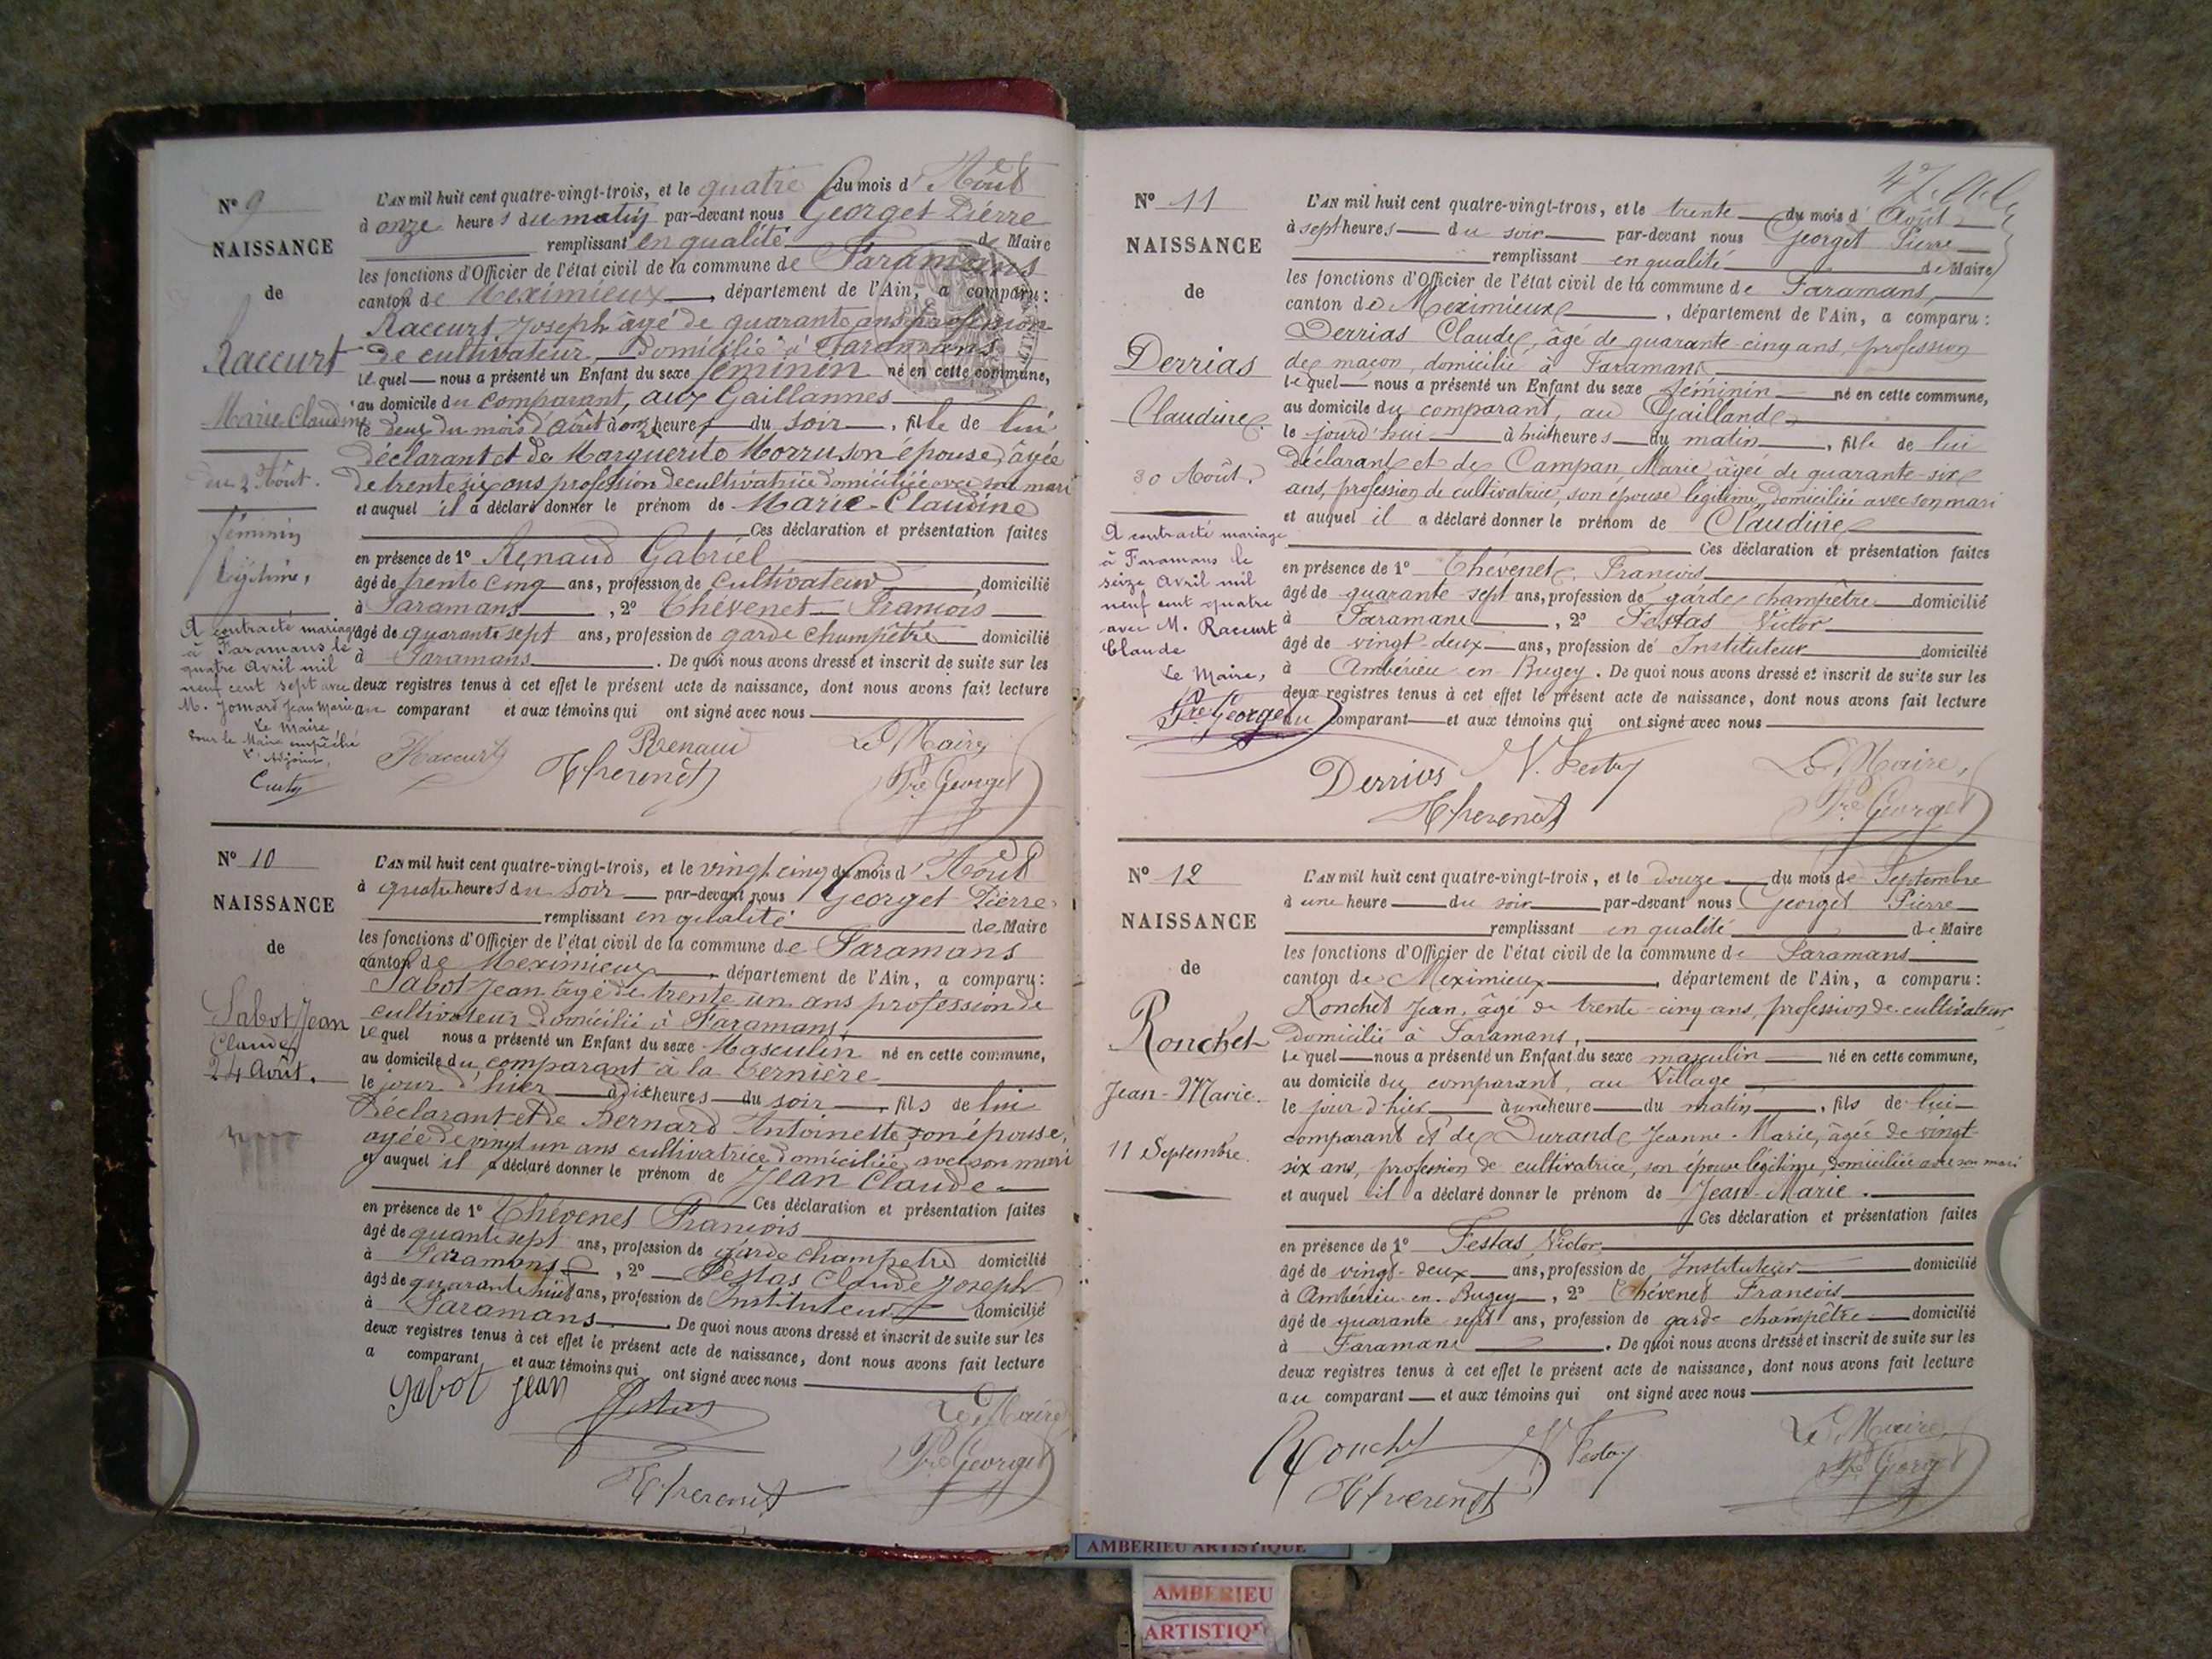 N° 9
NAISSANCE
de
Raccurt
Marie Claudine
du 2 Août.
féminin
légitime,
A contracté mariage
à Faramans le
quatre Avril mil
neuf cent sept avec
M. Jomard Jean Marie
Le Maire
Pour le Maire empêché
L'Adjoint,
L'AN mil huit cent quatre-vingt-trois, et le quatre du mois d'Août
à onze heures du matin par-devant nous Georget Pierre
remplissant en qualité de Maire
les fonctions d'Officier de l'état civil de la commune de Faramans
canton de Meximieux, département de l'Ain, a comparu:
Raccurt Joseph âgé de quarante ans profession
de cultivateur Domicilié à Faramans
lequel nous a présenté un Enfant du sexe féminin né en cette commune,
au domicile du comparant, aux Gaillannes
le deux du mois d'Août à onze heures du soir, fille de lui
déclarant et de Marguerite Morru son épouse, âgée
de trente six ans profession de cultivatrice domiciliée avec son mari
et auquel il a déclaré donner le prénom de Marie-Claudine
Ces déclaration et présentation faites
en présence de 1° Renaud Gabriel
âgé de trente cinq ans, profession de cultivateur domicilié
à Faramans, 2° Thévenet François
âgé de quarante sept ans, profession de garde champêtre domicilié
à Faramans. De quoi nous avons dressé et inscrit de suite sur les
deux registres tenus à cet effet le présent acte de naissance, dont nous avons fait lecture
au comparant et aux témoins qui ont signé avec nous
Raccurt Renaud Le Maire
Thevenet Pre Georget
N° 10
NAISSANCE
de
Sabot Jean
Claude
24 Août.
L'AN mil huit cent quatre-vingt-trois, et le vingt cinq du mois d'Août
à quatre heures du soir par-devant nous Georget Pierre
remplissant en qualité de Maire
les fonctions d'Officier de l'état civil de la commune de Faramans
canton de Meximieux département de l'Ain, a comparu:
Sabot Jean âgé de trente un ans profession de
cultivateur Domicilié à Faramans
lequel nous a présenté un Enfant du sexe Masculin né en cette commune,
au domicile du comparant à la Bernière
le jour d'hier à dix heures du soir, fils de lui
Déclarant et de Bernard Antoinette, son épouse,
agée de vingt un ans cultivatrice domiciliée avec son mari
et auquel il a déclaré donner le prénom de Jean Claude
Ces déclaration et présentation faites
en présence de 1° Thévenet François
âgé de quante sept ans, profession de garde champetre domicilié
à Faramans, 2° Festas Claude Joseph
âgé de quarante huit ans, profession de Instituteur domicilié
à Faramans. De quoi nous avons dressé et inscrit de suite sur les
deux registres tenus à cet effet le présent acte de naissance, dont nous avons fait lecture
a comparant et aux témoins qui ont signé avec nous
Sabot Jean Festas Le Maire
Thevenet Pre Georget
N° 11
NAISSANCE
de
Derrias
Claudine.
30 Août.
A contracté mariage
à Faramans le
seize Avril mil
neuf cent quatre
avec M. Raccurt
Claude
Le Maire,
Pre Georget
L'AN mil huit cent quatre-vingt-trois, et le trente du mois d'Août
à sept heures du soir par-devant nous Georget Pierre
remplissant en qualité de Maire
les fonctions d'Officier de l'état civil de la commune de Faramans,
canton de Meximieux, département de l'Ain, a comparu:
Derrias Claude, âgé de quarante-cinq ans, profession
de maçon, domicilié à Faramans
lequel nous a présenté un Enfant du sexe féminin né en cette commune,
au domicile du comparant, au Gailland
le jourd'hui à huit heures du matin, fille de lui
Déclarant et de Campan Marie, âgée de quarante-six
ans, profession de cultivatrice, son épouse légitime, Domiciliée avec son mari
et auquel il a déclaré donner le prénom de Claudine
Ces déclaration et présentation faites
en présence de 1° Thévenet, François
âgé de quarante-sept ans, profession de garde champêtre domicilié
à Faramans, 2° Festas Victor
âgé de vingt-deux ans, profession de Instituteur domicilié
à Ambérieu en Bugey. De quoi nous avons dressé et inscrit de suite sur les
deux registres tenus à cet effet le présent acte de naissance, dont nous avons fait lecture
au comparant et aux témoins qui ont signé avec nous
Derrias V. Festas Le Maire,
Thevenet Pre Georget
N° 12
NAISSANCE
de
Ronchet
Jean-Marie.
11 Septembre.
L'AN mil huit cent quatre-vingt-trois, et le douze du mois de Septembre
à une heure du soir par-devant nous Georget Pierre
remplissant en qualité de Maire
les fonctions d'Officier de l'état civil de la commune de Faramans
canton de Meximieux, département de l'Ain, a comparu:
Ronchet Jean, âgé de trente-cinq ans, profession de cultivateur
Domicilié à Faramans,
lequel nous a présenté un Enfant du sexe masculin né en cette commune,
au domicile du comparant, au Village
le jour d'hier à une heure du matin, fils de lui
comparant et de Durand Jeanne-Marie, âgée de vingt
six ans, profession de cultivatrice, son épouse légitime, Domiciliée avec son mari
et auquel il a déclaré donner le prénom de Jean-Marie.
Ces déclaration et présentation faites
en présence de 1° Festas Victor
âgé de vingt-deux ans, profession de Instituteur domicilié
à Ambérieu-en-Bugey, 2° Thévenet François
âgé de quarante sept ans, profession de garde champêtre domicilié
à Faramans. De quoi nous avons dressé et inscrit de suite sur les
deux registres tenus à cet effet le présent acte de naissance, dont nous avons fait lecture
au comparant et aux témoins qui ont signé avec nous
Ronchet V. Festas Le Maire,
Thevenet Pre Georget
AMBERIEU ARTISTIQUE
AMBERIEU
ARTISTIQUE